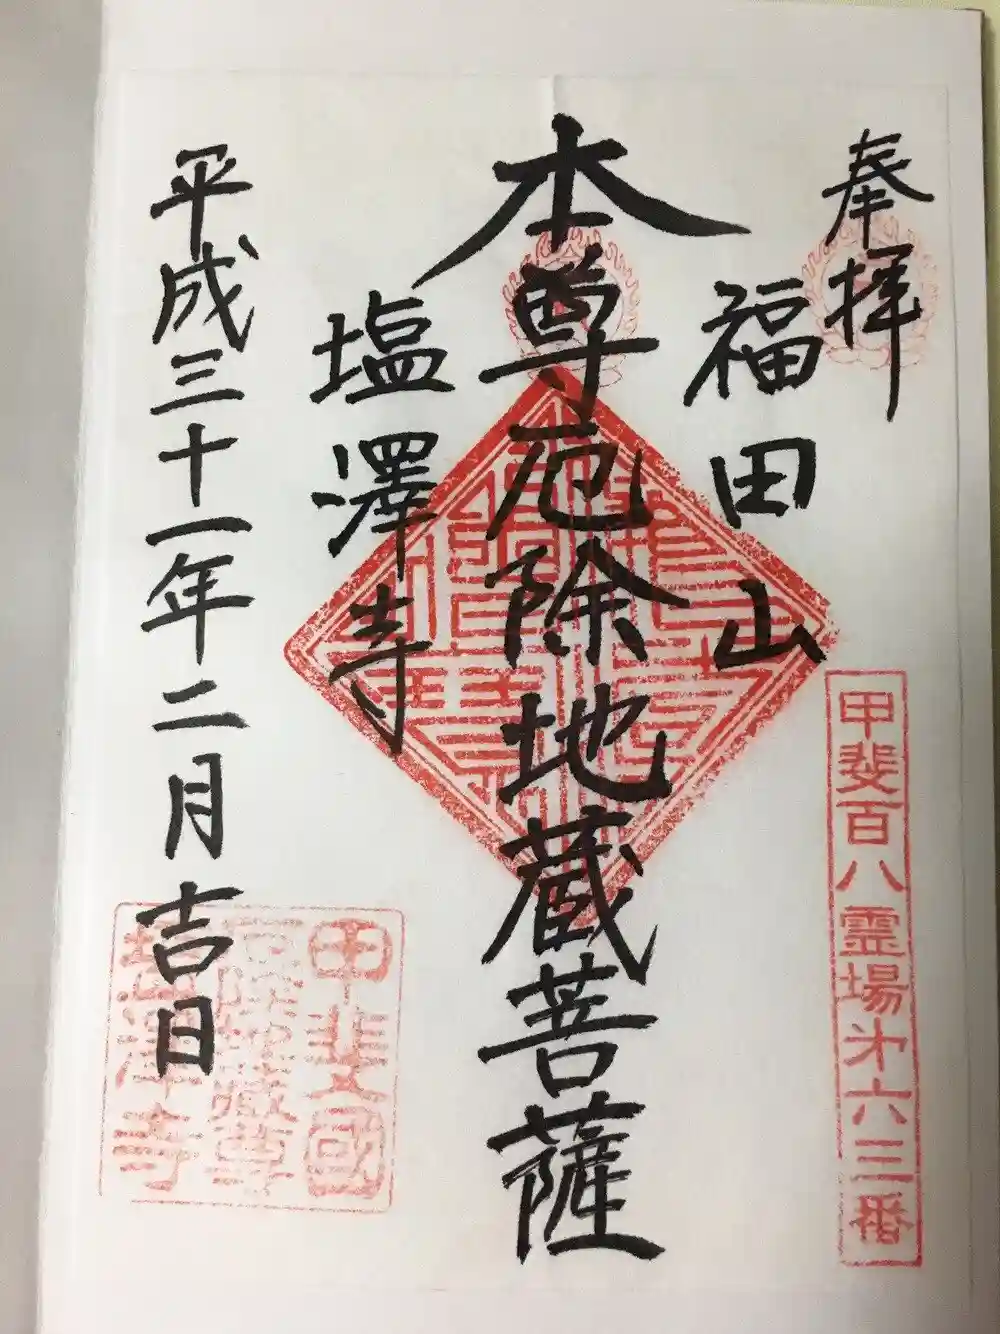 奉拝
甲斐百八霊場第六三番
福田山
本尊厄除地蔵菩薩
塩澤寺
甲斐國
塩澤寺
平成三十一年二月吉日